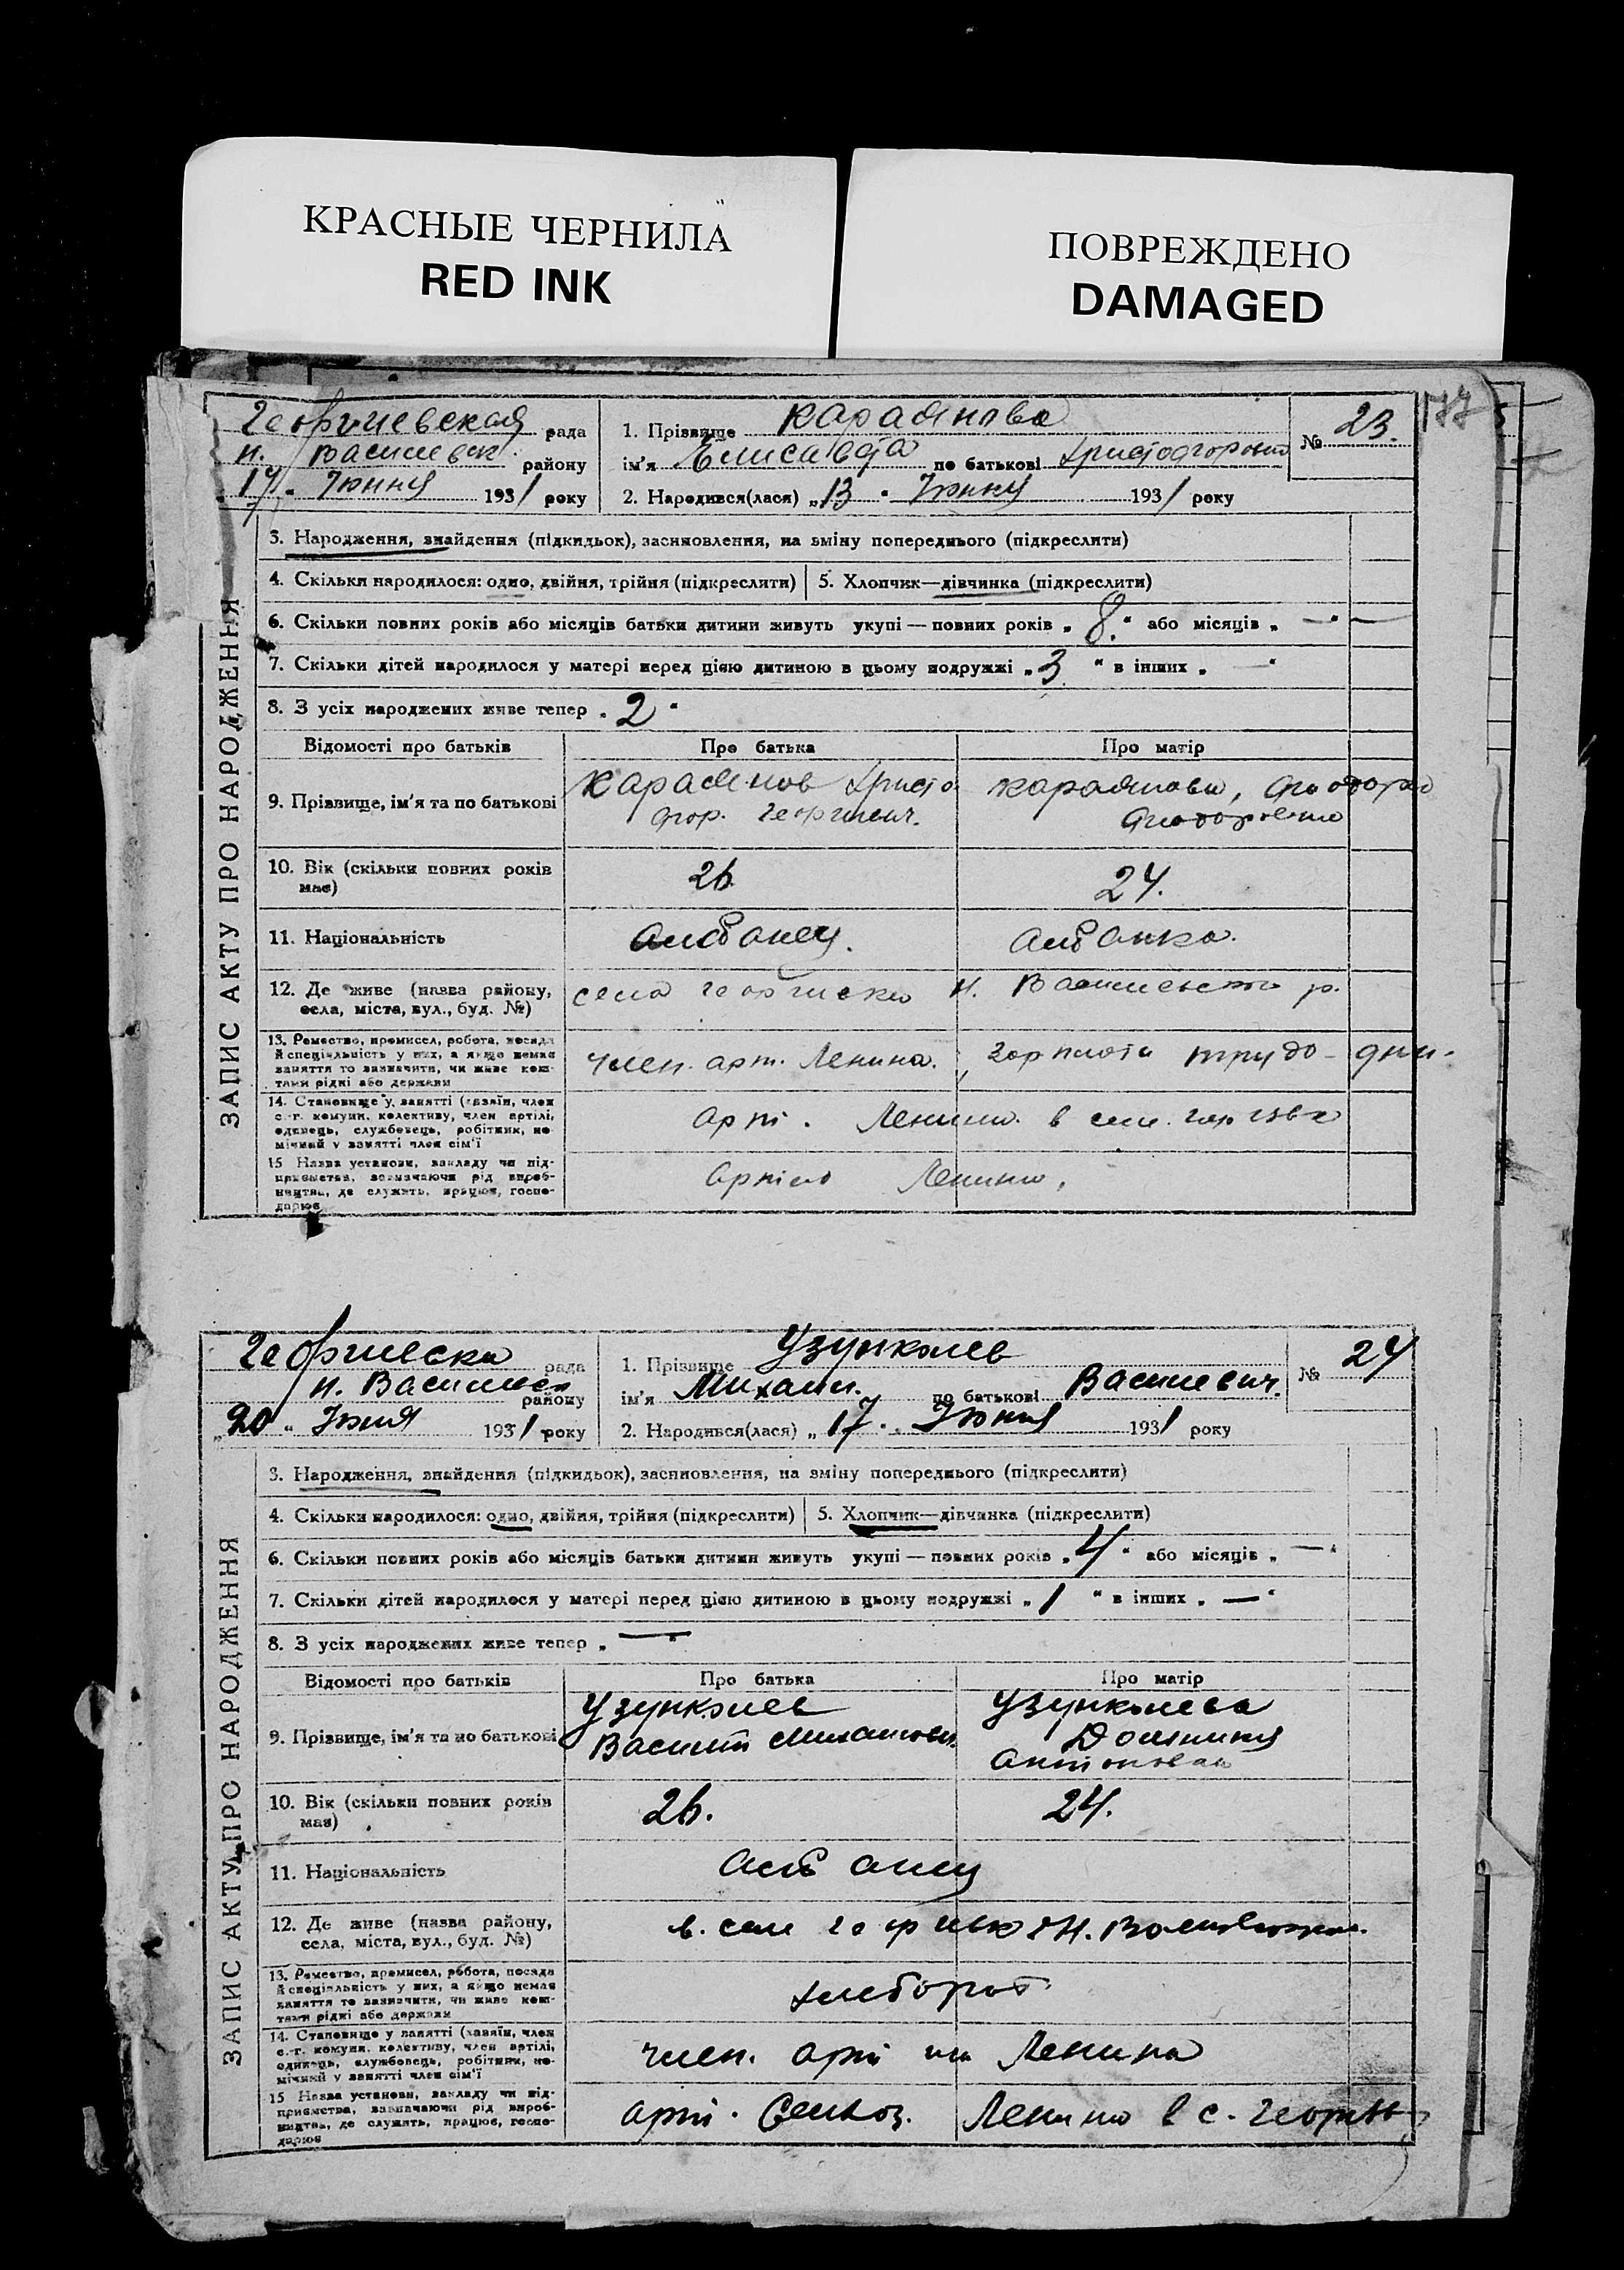 КРАСНЫЕ ЧЕРНИЛА
RED INK
ПОВРЕЖДЕНО
DAMAGED
177
Георгиевская рада
н. Васильевк району
„17“ Июния 1931 року
1. Прізвище Караянова
ім'я Елисавета по батькові Христофоровна
2. Народився(лася) „13“ Июния 1931 року
№ 23.
ЗАПИС АКТУ ПРО НАРОДЖЕННЯ
3. Народження, знайдення (підкидьок), засиновлення, на зміну попереднього (підкреслити)
4. Скільки народилося: одно, двійня, трійня (підкреслити) 5. Хлопчик—дівчинка (підкреслити)
6. Скільки повних років або місяців батьки дитини живуть укупі — повних років „8.“ або місяців „—“
7. Скільки дітей народилося у матері перед цією дитиною в цьому подружжі „3“ в інших „—“
8. З усіх народжених живе тепер „2“
Відомості про батьків Про батька Про матір
9. Прізвище, ім'я та по батькові Караянов Христо- Караянова,
фор. Георгиевич.
10. Вік (скільки повних років має) 26. 24.
11. Національність Албанец. Албанка.
12. Де живе (назва району, села, міста, вул., буд. №) села Георгиевка Н. Васильевского р.
13. Ремество, промисел, робота, посада
й спеціяльність у них, а якщо немає
заняття то зазначити, чи живе кош-
тами рідні або держави
член. арт. Ленина. трудо-дни.
14. Становище у занятті (хазяїн, член
с.-г. комуни, колективу, член артілі,
одинець, службовець, робітник, по-
мічний у занятті член сім'ї
арт. Ленина. в сел.
15 Назва установи, закладу чи під-
приємства, зазначаючи рід вироб-
ництва, де служить, працює, госпо-
дарює
Артель Ленина.
Георгиевска рада
н. Василиев району
„20“ Июния 1931 року
1. Прізвище Узунколев
ім'я Михаил. по батькові Василевич.
2. Народився(лася) „17“ Июния 1931 року
№ 24
ЗАПИС АКТУ ПРО НАРОДЖЕННЯ
3. Народження, знайдення (підкидьок), засиновлення, на зміну попереднього (підкреслити)
4. Скільки народилося: одно, двійня, трійня (підкреслити) 5. Хлопчик—дівчинка (підкреслити)
6. Скільки повних років або місяців батьки дитини живуть укупі — повних років „4“ або місяців „—“
7. Скільки дітей народилося у матері перед цією дитиною в цьому подружжі „1“ в інших „—“
8. З усіх народжених живе тепер „—“
Відомості про батьків Про батька Про матір
9. Прізвище, ім'я та по батькові Узунколев Узунколева
Василий Михайлович. Домникия
Антоновна
10. Вік (скільки повних років має) 26. 24.
11. Національність Албанец
12. Де живе (назва району, села, міста, вул., буд. №) в. селе
13. Ремество, промисел, робота, посада
й спеціяльність у них, а якщо немає
заняття то зазначити, чи живе кош-
тами рідні або держави
хлебороб
14. Становище у занятті (хазяїн, член
с.-г. комуни, колективу, член артілі,
одинець, службовець, робітник, по-
мічний у занятті член сім'ї
член. арт им Ленина
15 Назва установи, закладу чи під-
приємства, зазначаючи рід вироб-
ництва, де служить, працює, госпо-
дарює
арт. Сельхоз. Ленина в с.